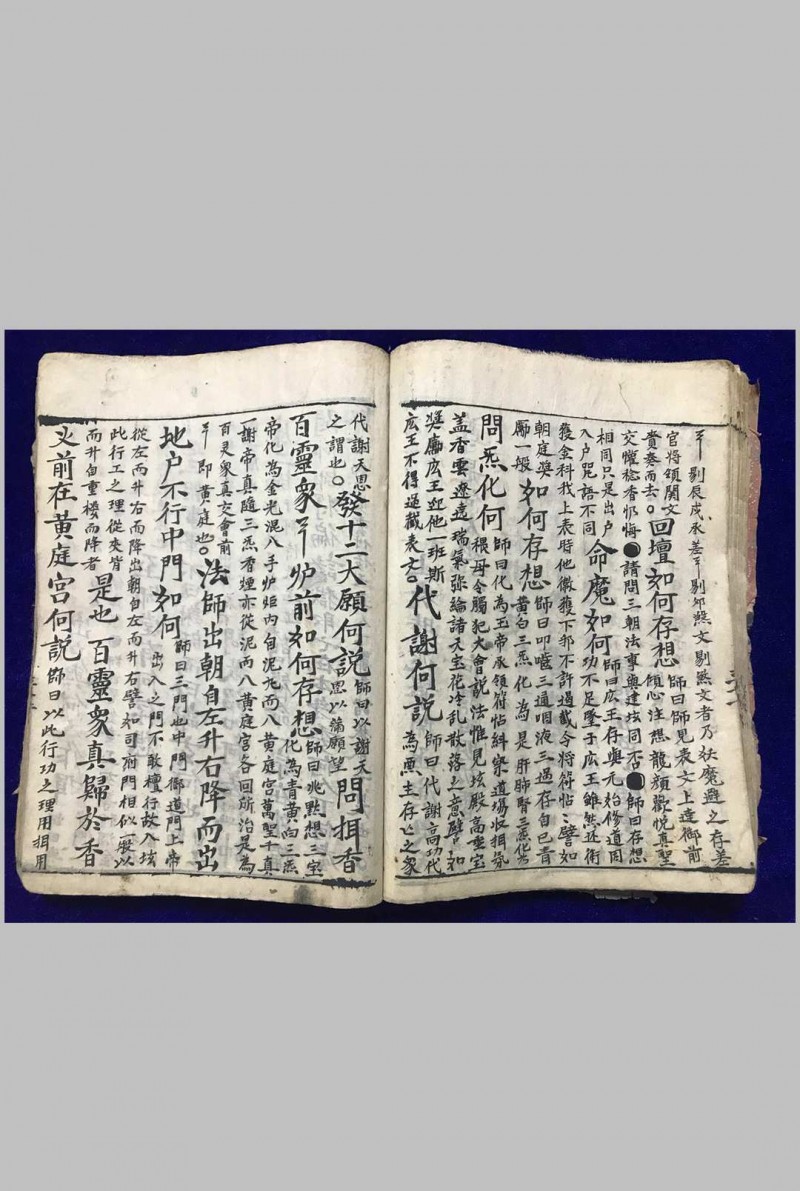 剔辰戌承差 剔卯煞文剔煞文者乃妖魔避之存差
官將領關文
賫奏而去○回壇如何存想師曰師見表文上達御前
傾心注想龍顏歡悅真聖
交懽稔香懺悔●請問三朝法事與建坛同否●師曰存想
相同只是出戶
入户咒語不同命魔如何師曰広王存與元始傷道因
功不足墜于広王雖然近術
獲金科找上表時他微獲下邪不許過截令將符帖譬如
朝庭奬
勵一般如何存想師曰叩噹三通咽液三過存自己青
黄白三炁化為是肝肺腎三炁化
問炁化何師曰化為玉帝承領符帖糾察道場收捐氛
穢毋令觸犯大會説法惟見坛殿高座宝
盖香雲遼遠瑞氣弥綸諸天宝花冷乱散落之意譬如
奬勵広王迎他一班斯
広王不得過截表文○代謝何説師曰代謝高功代
為衆生存亡之家
代謝天恩
之謂也○發十二大願何説師曰以謝天
恩以滿願望問捐香
百靈衆 炉前如何存想師曰兆點想三宝
化為青黄白三炁
帝化為金光混入手炉炬内自泥九而入黄庭宫萬聖千真
謝帝真隨三炁香煙亦從泥而入黄庭宫各回所治是為
百灵衆真交會前
即黄庭也○法師出朝自左升右降而出
地户不行中門如何師曰三門也中門御道門上帝
出入之門不敢擅行故入坛
從左而升右而降出朝自左而升右譬如司府門相似一般以
此行工之理從夾皆
而升自重楼而降者是也百靈衆真歸於香
火前在黄庭宫何説師曰以此行功之理用捐用